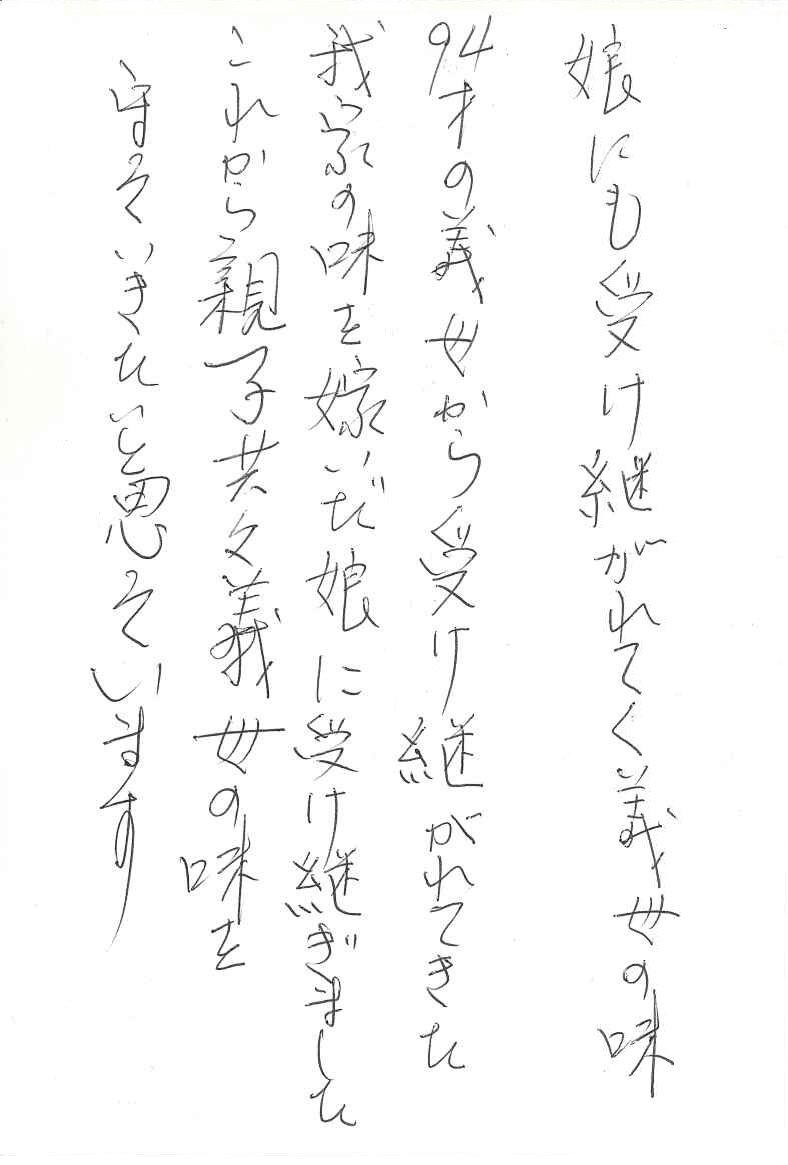 娘にも受け継がれてく義母の味
94才の義母から受け継がれてきた
我家の味を嫁いだ娘に受け継ぎました
これから親子共々義母の味を
守そいきたいと思そいます